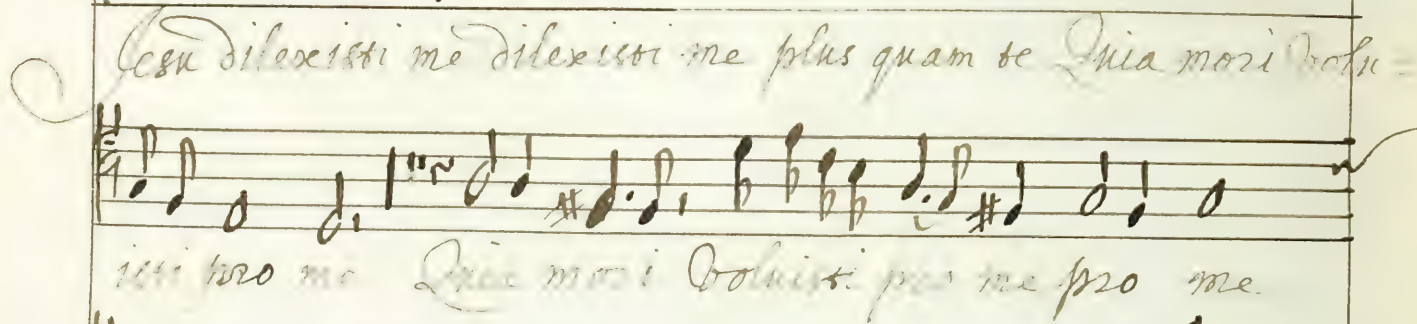 Jesu dilexisti me dilexisti me plus quam te Quia mori volu=
isti pro me Quia mori voluisti pro me pro me